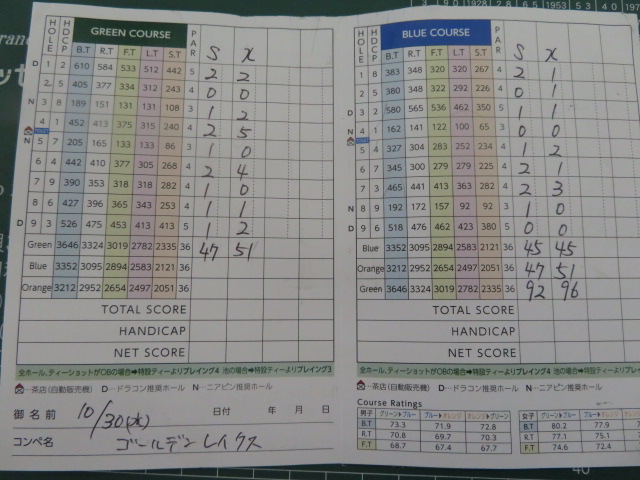 GREEN COURSE
HOLE HDCP B.T R.T F.T L.T S.T PAR S X
D 1 2 610 584 533 512 442 5 2 2
2 5 405 377 334 312 243 4 0 0
N 3 8 189 151 131 131 108 3 1 2
4 1 452 413 375 315 240 4 2 5
N 5 7 205 165 133 133 86 3 1 0
6 4 442 410 377 305 268 4 2 4
7 9 390 353 318 318 282 4 1 0
8 6 427 396 365 343 253 4 1 1
D 9 3 526 475 453 413 413 5 1 2
Green 3646 3324 3019 2782 2335 36 47 51
Blue 3352 3095 2894 2583 2121 36
Orange 3212 2952 2654 2497 2051 36
TOTAL SCORE
HANDICAP
NET SCORE
全ホール、ティーショットがOBの場合➡特設ティーよりプレイング4 池の場合➡特設ティーよりプレイング3
…茶店(自動販売機) D…ドラコン推奨ホール N…ニアピン推奨ホール
御名前 10/30(水) 日付 年 月 日
コンペ名 ゴールデンレイクス
BLUE COURSE
HOLE HDCP B.T R.T F.T L.T S.T PAR S X
1 8 383 348 320 320 267 4 2 1
2 5 380 348 322 292 226 4 0 1
D 3 2 580 565 536 462 350 5 1 1
N 4 1 162 141 122 100 65 3 0 0
5 4 327 304 283 252 234 4 1 2
6 7 345 300 279 279 225 4 2 1
7 3 465 441 413 363 282 4 2 3
N 8 9 192 172 157 92 92 3 1 0
D 9 6 518 476 462 423 380 5 0 0
Blue 3352 3095 2894 2583 2121 36 45 45
Orange 3212 2952 2654 2497 2051 36 47 51
Green 3646 3324 3019 2782 2335 36 92 96
TOTAL SCORE
HANDICAP
NET SCORE
全ホール、ティーショットがOBの場合➡特設ティーよりプレイング4 池の場合➡特設ティーよりプレイング3
…茶店(自動販売機) D…ドラコン推奨ホール N…ニアピン推奨ホール
Course Ratings
男子 グリーン▶ブルー ブルー▶オレンジ オレンジ▶グリーン
B.T 73.3 71.9 72.8
R.T 70.8 69.7 70.3
F.T 68.7 67.4 67.7
女子 グリーン▶ブルー ブルー▶
B.T 80.2 77.9
R.T 77.1 75.1
F.T 74.6 72.4